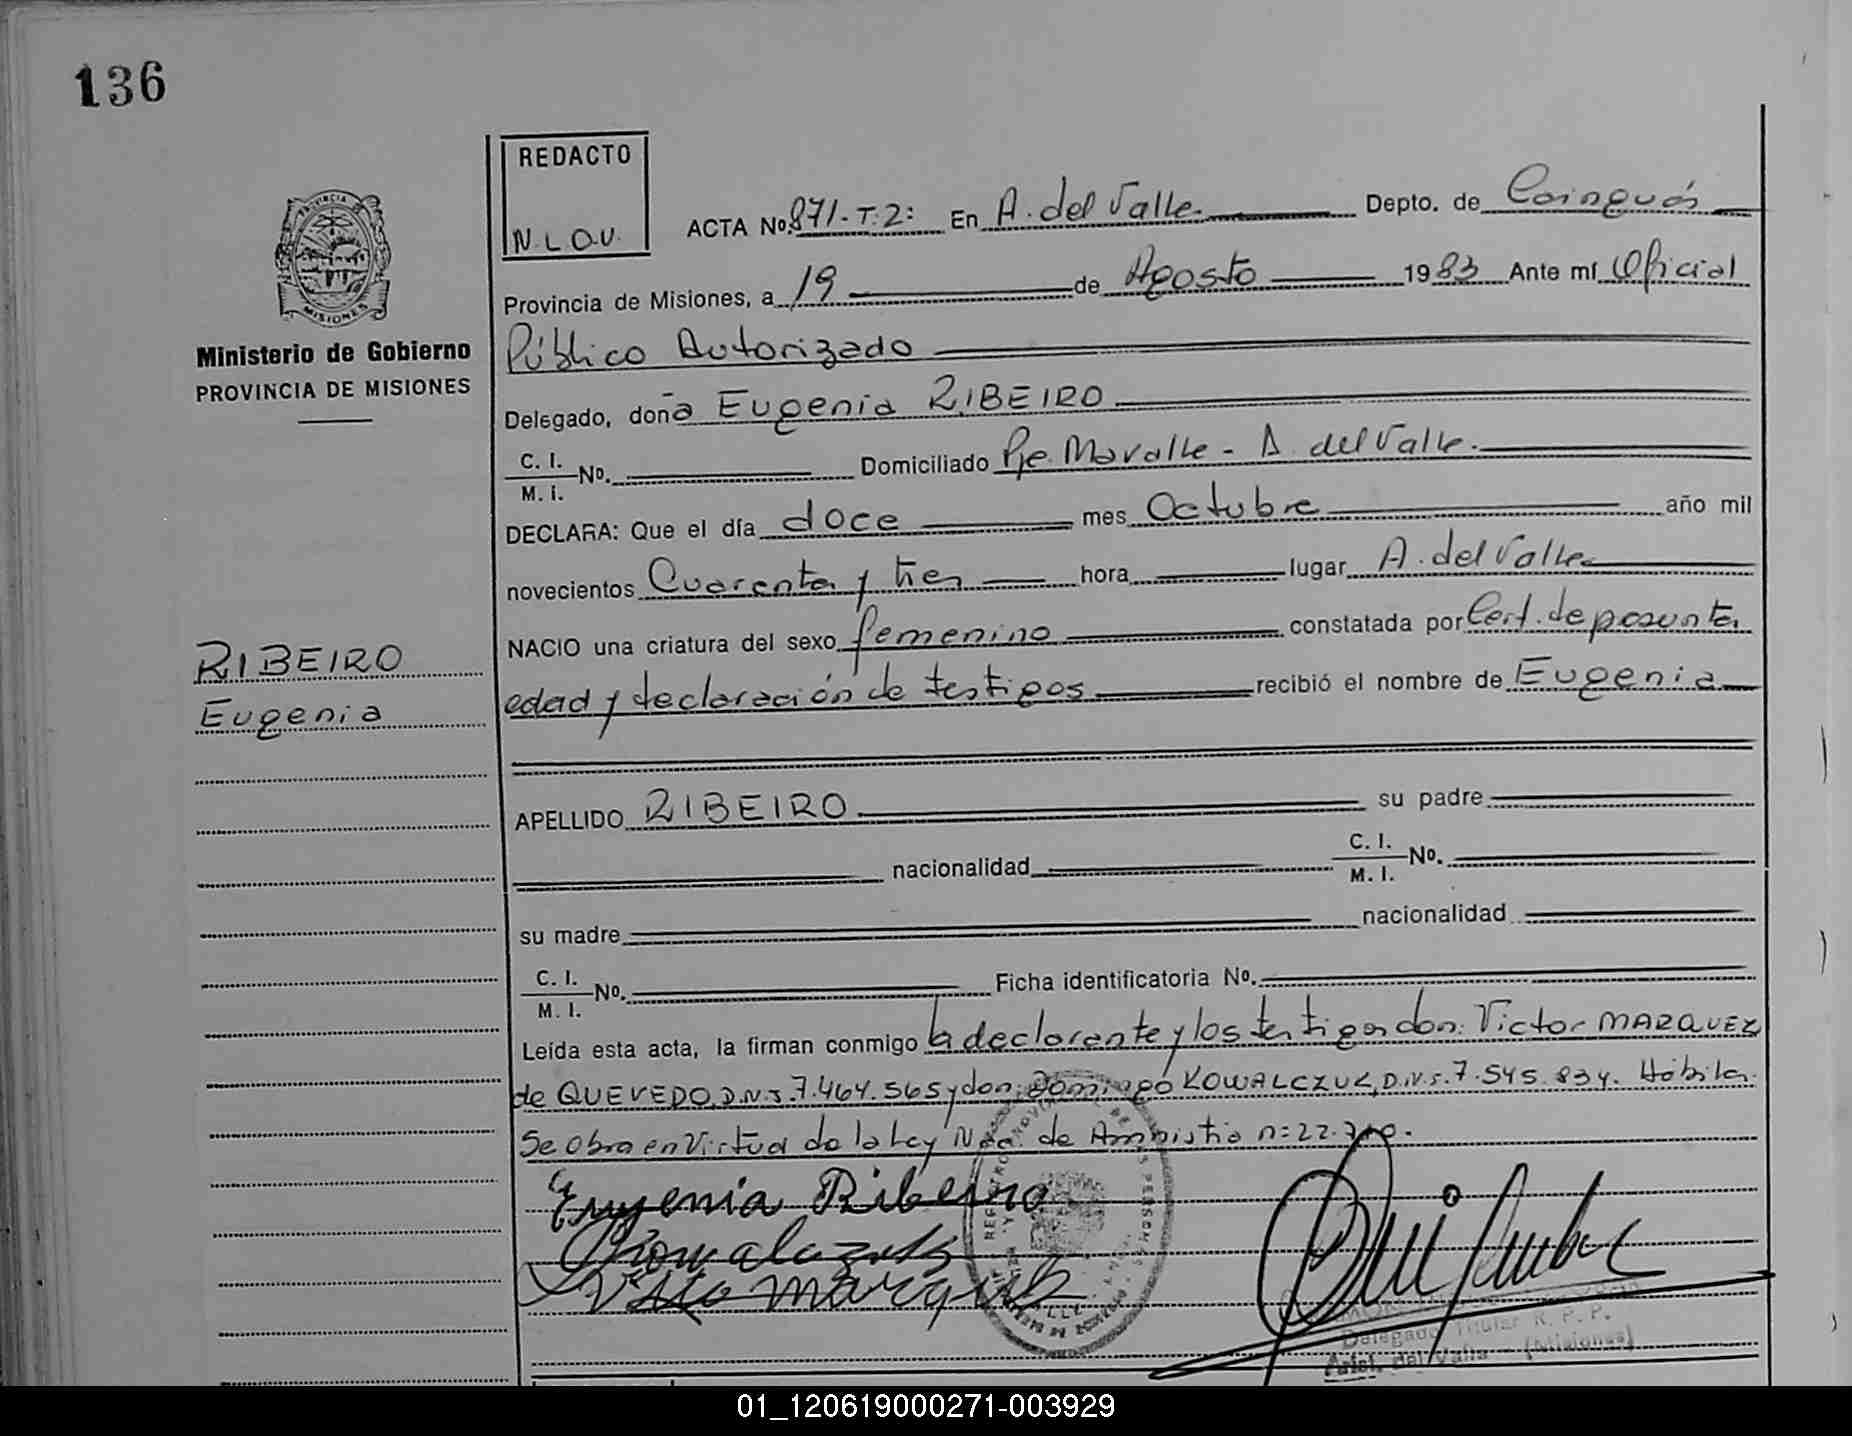 136
REDACTO
N. L O.U.
ACTA No. 871-T.2: En A. del Valle Depto. de Cainguás
Provincia de Misiones, a 19 de Agosto 1983 Ante mí Oficial
Público Autorizado
MISIONES
Ministerio de Gobierno
PROVINCIA DE MISIONES
Delegado, doña Eugenia RIBEIRO
C. I.
M. I. No. Domiciliado Pje. Mavalle - A. del Valle.
DECLARA: Que el día doce mes Octubre año mil
novecientos Cuarenta y tres hora lugar A. del Valle
NACIO una criatura del sexo femenino constatada por Cert. de presunta
edad y declaración de testigos recibió el nombre de Eugenia
RIBEIRO
Eugenia
APELLIDO RIBEIRO su padre
nacionalidad C. I.
M. I. No.
su madre nacionalidad
C. I.
M. I. No. Ficha identificatoria No.
Leída esta acta, la firman conmigo la declarante y los testigos don: Victor MARQUEZ
de QUEVEDO, D.N.I. 7.464.565 y don: Domingo KOWALCZUK, D.N.I. 7.545.834. Hábiles.
Se obra en Virtud de la Ley Nac. de Amnistia n: 22.
Eugenia Ribeiro
Delegado Titular R. P. P.
Arist. del Valle - (Misiones)
01_120619000271-003929